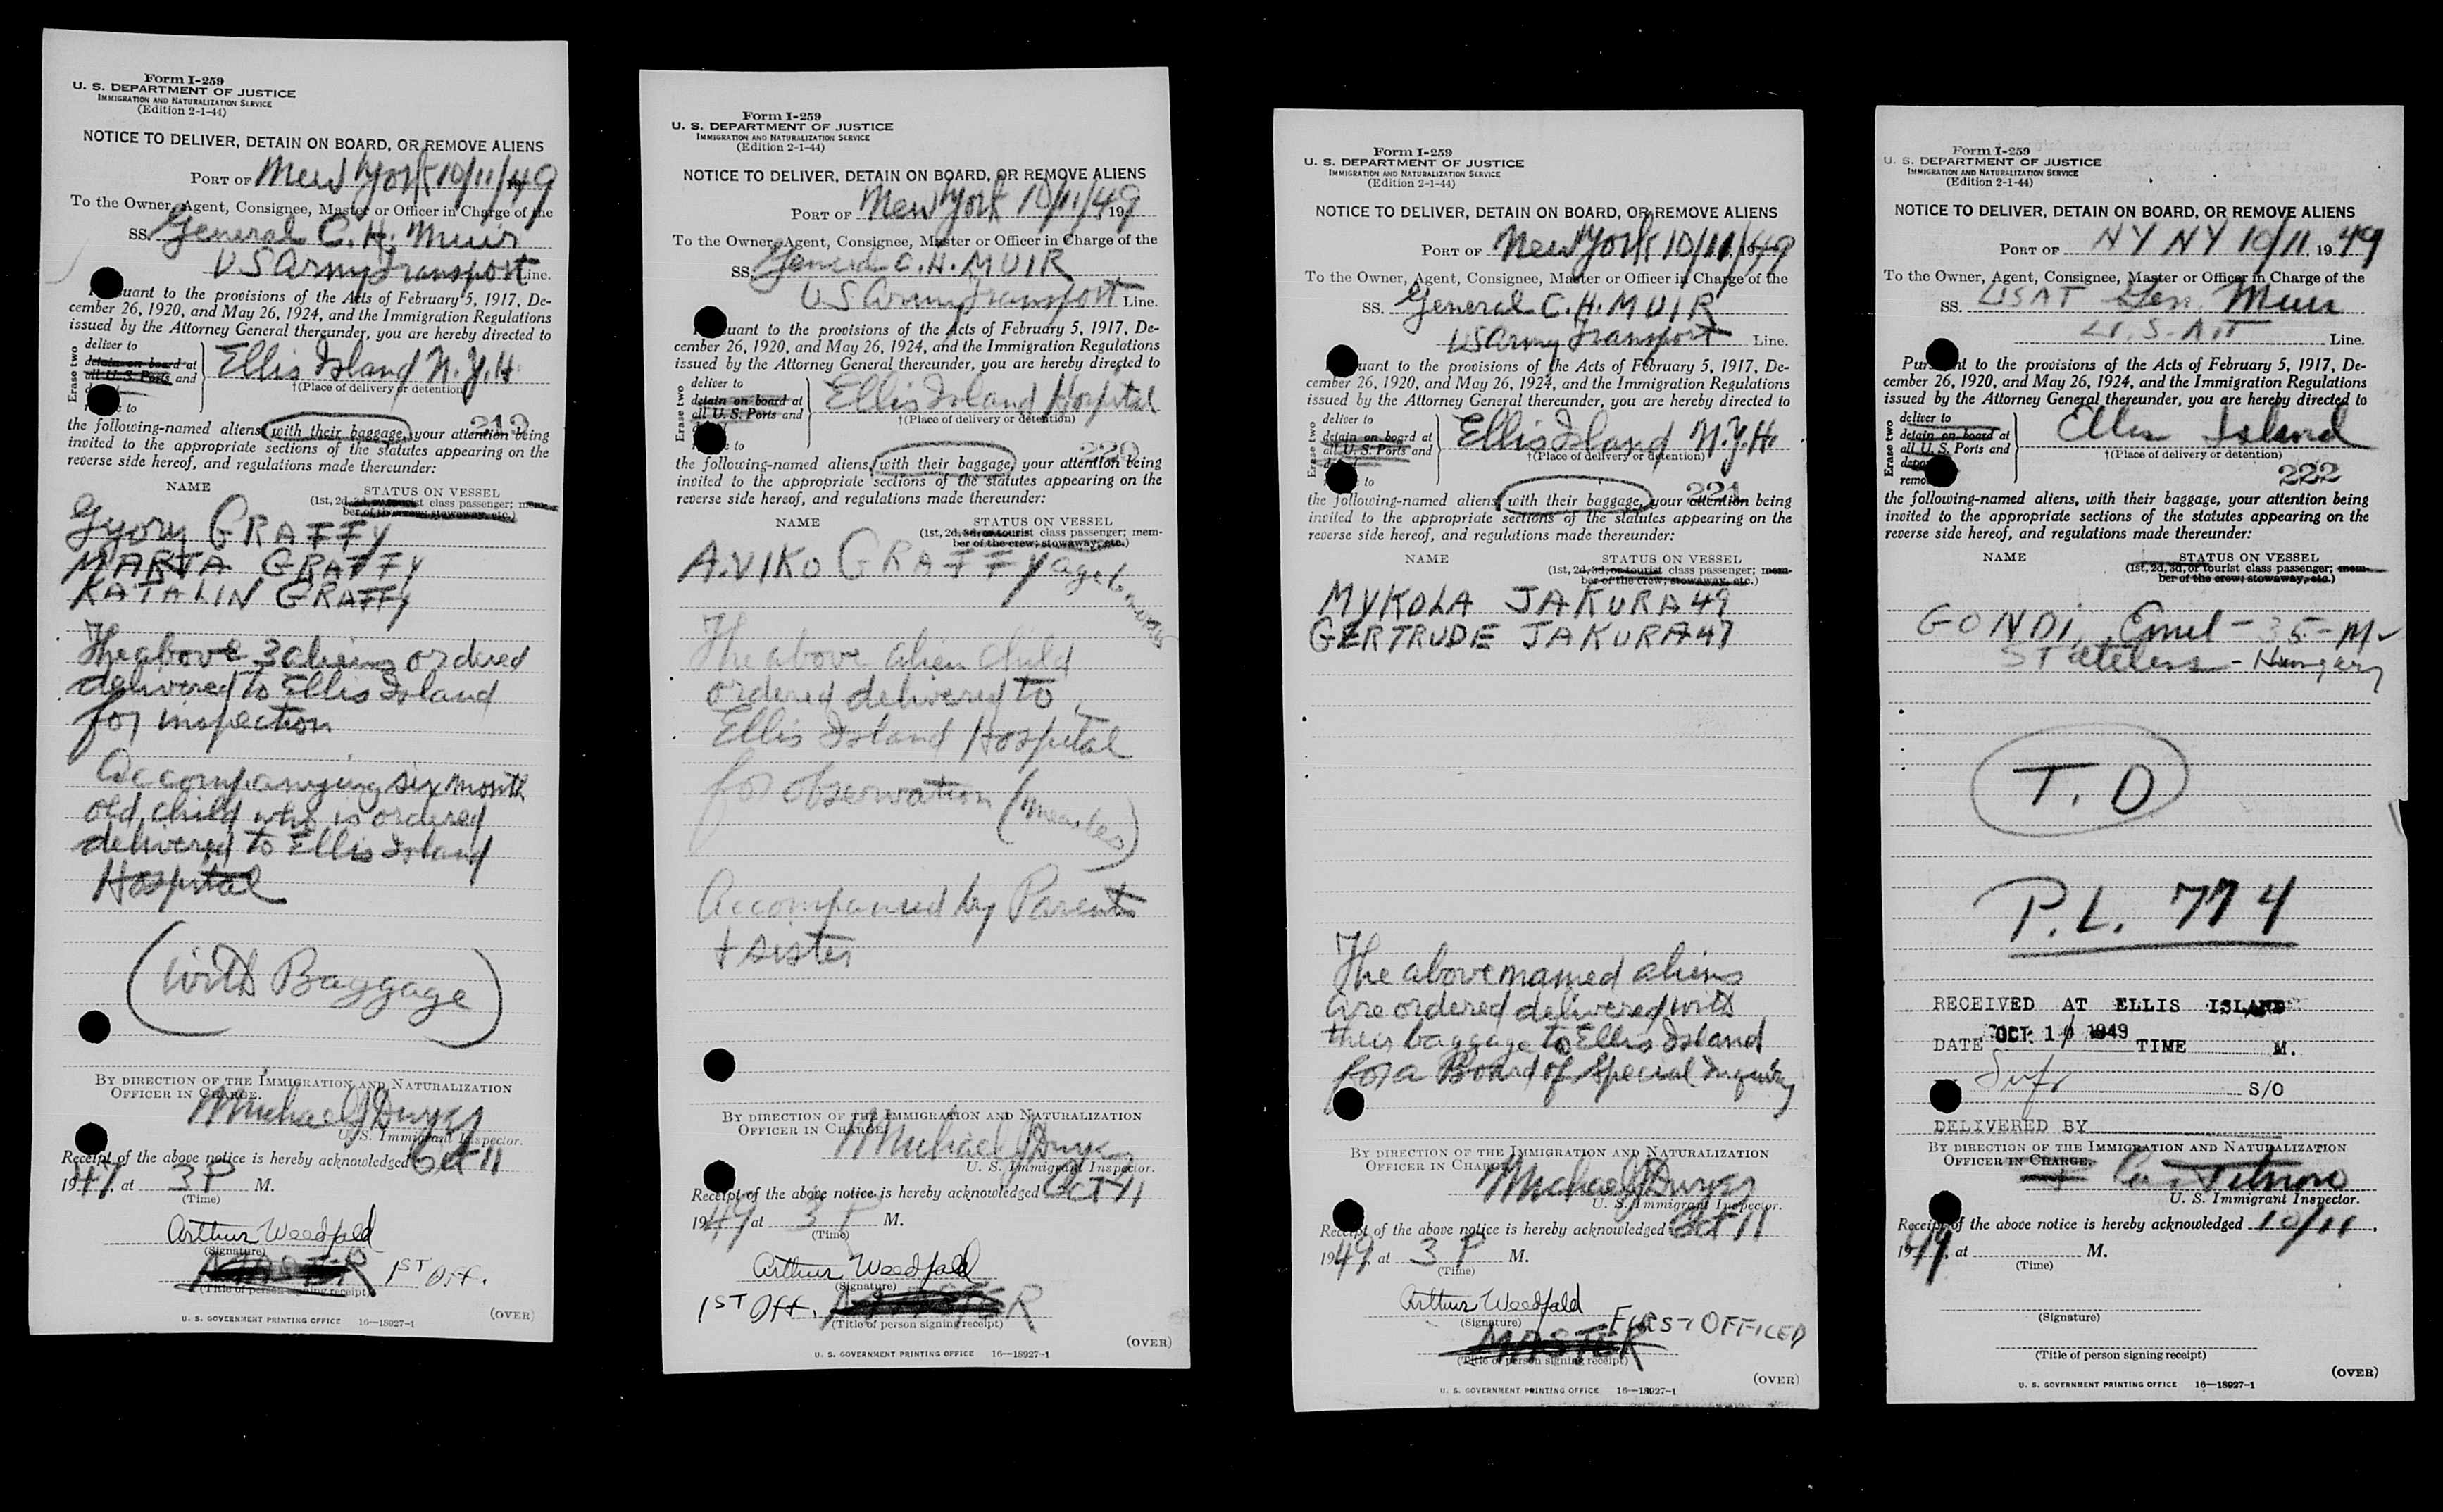 Form I-259
U. S. DEPARTMENT OF JUSTICE
IMMIGRATION AND NATURALIZATION SERVICE
(Edition 2-1-44)
NOTICE TO DELIVER, DETAIN ON BOARD, OR REMOVE ALIENS
PORT OF New York 10/11/49
To the Owner, Agent, Consignee, Master or Officer in Charge of the
SS. General C. H. Muir
US Army Transport Line.
uant to the provisions of the Acts of February 5, 1917, De-
cember 26, 1920, and May 26, 1924, and the Immigration Regulations
issued by the Attorney General thereunder, you are hereby directed to
Erase two
deliver to
detain on board at
all U. S. Ports and
to
Ellis Island N.Y.H.
†(Place of delivery or detention)
219
the following-named aliens, with their baggage, your attention being
invited to the appropriate sections of the statutes appearing on the
reverse side hereof, and regulations made thereunder:
NAME
STATUS ON VESSEL
(1st, 2d, 3d, or tourist class passenger; mem-
ber of the crew; stowaway, etc.)
Gyory GRAFFY
MARTA GRAFFY
KATALIN GRAFFY
The above 3 aliens ordered
delivered to Ellis Island
for inspection
Accompanying six month
old child who is ordered
delivered to Ellis Island
Hospital
(with Baggage)
BY DIRECTION OF THE IMMIGRATION AND NATURALIZATION
OFFICER IN CHARGE.
Michael J Dwyer
U. S. Immigrant Inspector.
Receipt of the above notice is hereby acknowledged Oct 11
1949, at 3 P M.
(Time)
Arthur Weedfald
(Signature)
MASTER 1ST Off.
(Title of person signing receipt)
(OVER)
U. S. GOVERNMENT PRINTING OFFICE 16—18927-1
Form I-259
U. S. DEPARTMENT OF JUSTICE
IMMIGRATION AND NATURALIZATION SERVICE
(Edition 2-1-44)
NOTICE TO DELIVER, DETAIN ON BOARD, OR REMOVE ALIENS
PORT OF New York 10/11/49 19
To the Owner, Agent, Consignee, Master or Officer in Charge of the
SS. General C. H. MUIR
US Army Transport Line.
uant to the provisions of the Acts of February 5, 1917, De-
cember 26, 1920, and May 26, 1924, and the Immigration Regulations
issued by the Attorney General thereunder, you are hereby directed to
Erase two
deliver to
detain on board at
all U. S. Ports and
to
Ellis Island Hospital
†(Place of delivery or detention)
220
the following-named aliens, with their baggage, your attention being
invited to the appropriate sections of the statutes appearing on the
reverse side hereof, and regulations made thereunder:
NAME
STATUS ON VESSEL
(1st, 2d, 3d, or tourist class passenger; mem-
ber of the crew; stowaway, etc.)
A.VIKO GRAFFY age 6 months
The above alien child
ordered delivered to
Ellis Island Hospital
for observation (measles)
Accompanied by Parents
+ sister
BY DIRECTION OF THE IMMIGRATION AND NATURALIZATION
OFFICER IN CHARGE.
Michael J Dwyer
U. S. Immigrant Inspector.
Receipt of the above notice is hereby acknowledged Oct 11
1949 at 3 P M.
(Time)
Arthur Weedfald
(Signature)
1ST Off. MASTER
(Title of person signing receipt)
(OVER)
U. S. GOVERNMENT PRINTING OFFICE 16—18927-1
Form I-259
U. S. DEPARTMENT OF JUSTICE
IMMIGRATION AND NATURALIZATION SERVICE
(Edition 2-1-44)
NOTICE TO DELIVER, DETAIN ON BOARD, OR REMOVE ALIENS
PORT OF New York 10/11/1949
To the Owner, Agent, Consignee, Master or Officer in Charge of the
SS. General C. H. MUIR
US Army Transport Line.
uant to the provisions of the Acts of February 5, 1917, De-
cember 26, 1920, and May 26, 1924, and the Immigration Regulations
issued by the Attorney General thereunder, you are hereby directed to
Erase two
deliver to
detain on board at
all U. S. Ports and
to
Ellis Island N.Y.H.
†(Place of delivery or detention)
221
the following-named aliens, with their baggage, your attention being
invited to the appropriate sections of the statutes appearing on the
reverse side hereof, and regulations made thereunder:
NAME
STATUS ON VESSEL
(1st, 2d, 3d, or tourist class passenger; mem-
ber of the crew; stowaway, etc.)
MYKOLA JAKURA 49
GERTRUDE JAKURA 47
The above named aliens
are ordered delivered with
their baggage to Ellis Island
for a Board of Special Inquiry
BY DIRECTION OF THE IMMIGRATION AND NATURALIZATION
OFFICER IN CHARGE.
Michael J Dwyer
U. S. Immigrant Inspector.
Receipt of the above notice is hereby acknowledged Oct 11
1949, at 3 P M.
(Time)
Arthur Weedfald
(Signature)
FIRST OFFICER
MASTER
(Title of person signing receipt)
(OVER)
U. S. GOVERNMENT PRINTING OFFICE 16—18927-1
Form I-259
U. S. DEPARTMENT OF JUSTICE
IMMIGRATION AND NATURALIZATION SERVICE
(Edition 2-1-44)
NOTICE TO DELIVER, DETAIN ON BOARD, OR REMOVE ALIENS
PORT OF NY NY 10/11, 1949
To the Owner, Agent, Consignee, Master or Officer in Charge of the
SS. USAT Gen. Muir
U.S.A.T Line.
Pur nt to the provisions of the Acts of February 5, 1917, De-
cember 26, 1920, and May 26, 1924, and the Immigration Regulations
issued by the Attorney General thereunder, you are hereby directed to
Erase two
deliver to
detain on board at
all U. S. Ports and
remo
Ellis Island
†(Place of delivery or detention)
222
the following-named aliens, with their baggage, your attention being
invited to the appropriate sections of the statutes appearing on the
reverse side hereof, and regulations made thereunder:
NAME
STATUS ON VESSEL
(1st, 2d, 3d, or tourist class passenger; mem-
ber of the crew; stowaway, etc.)
GONDI, Emil - 35 - M
Stateless - Hungary
T. D
P.L. 774
RECEIVED AT ELLIS ISLAND
DATE OCT 1 1949 TIME M.
S/O
DELIVERED BY
BY DIRECTION OF THE IMMIGRATION AND NATURALIZATION
OFFICER IN CHARGE.
U. S. Immigrant Inspector.
Receipt of the above notice is hereby acknowledged 10/11,
1949, at M.
(Time)
(Signature)
(Title of person signing receipt)
(OVER)
U. S. GOVERNMENT PRINTING OFFICE 16—18927-1